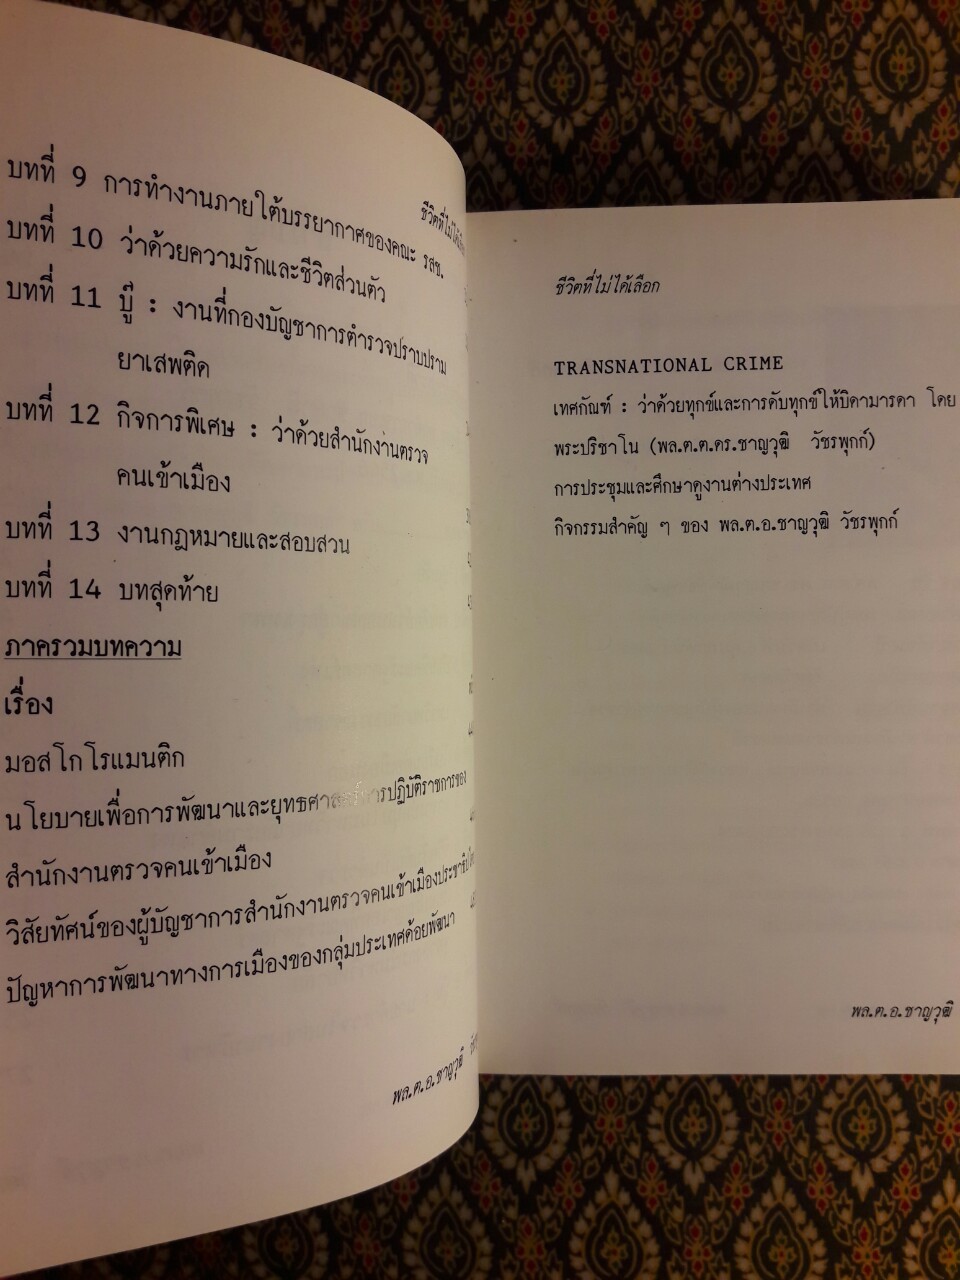 ชีวิตที่ไม่ได้
บทที่ 9 การทำงานภายใต้บรรยากาศของคณะ รสช.
บทที่ 10 ว่าด้วยความรักและชีวิตส่วนตัว
บทที่ 11 บู๊ : งานที่กองบัญชาการตำรวจปราบปราม
ยาเสพติด
บทที่ 12 กิจการพิเศษ : ว่าด้วยสำนักงานตรวจ
คนเข้าเมือง
บทที่ 13 งานกฎหมายและสอบสวน
บทที่ 14 บทสุดท้าย
ภาครวมบทความ
เรื่อง
มอสโกโรแมนติก
นโยบายเพื่อการพัฒนาและยุทธศาสตร์การปฏิบัติราชการของ
สำนักงานตรวจคนเข้าเมือง
วิสัยทัศน์ของผู้บัญชาการสำนักงานตรวจคนเข้าเมือง
ปัญหาการพัฒนาทางการเมืองของกลุ่มประเทศด้อยพัฒนา
พล.ต.อ.ชาญวุฒิ
ชีวิตที่ไม่ได้เลือก
TRANSNATIONAL CRIME
เทศกัณฑ์ : ว่าด้วยทุกข์และการดับทุกข์ให้บิดามารดา โดย
พระปริชาโน (พล.ต.ต.ดร.ชาญวุฒิ วัชรพุกก์)
การประชุมและศึกษาดูงานต่างประเทศ
กิจกรรมสำคัญ ๆ ของ พล.ต.อ.ชาญวุฒิ วัชรพุกก์
พล.ต.อ.ชาญวุฒิ